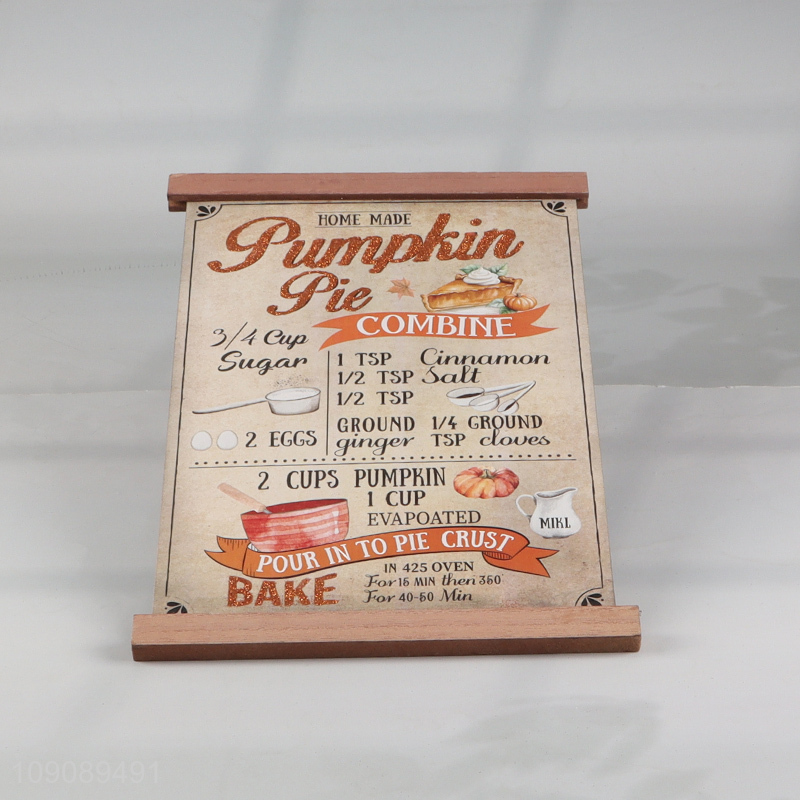 HOME MADE
Pumpkin
Pie
COMBINE
3/4 Cup
Sugar
1 TSP Cinnamon
1/2 TSP Salt
1/2 TSP
GROUND 1/4 GROUND
ginger TSP cloves
2 EGGS
2 CUPS PUMPKIN
1 CUP
EVAPOATED
MIKL
POUR IN TO PIE CRUST
BAKE
IN 425 OVEN
For 15 MIN then 350°
For 40-50 Min
109089491